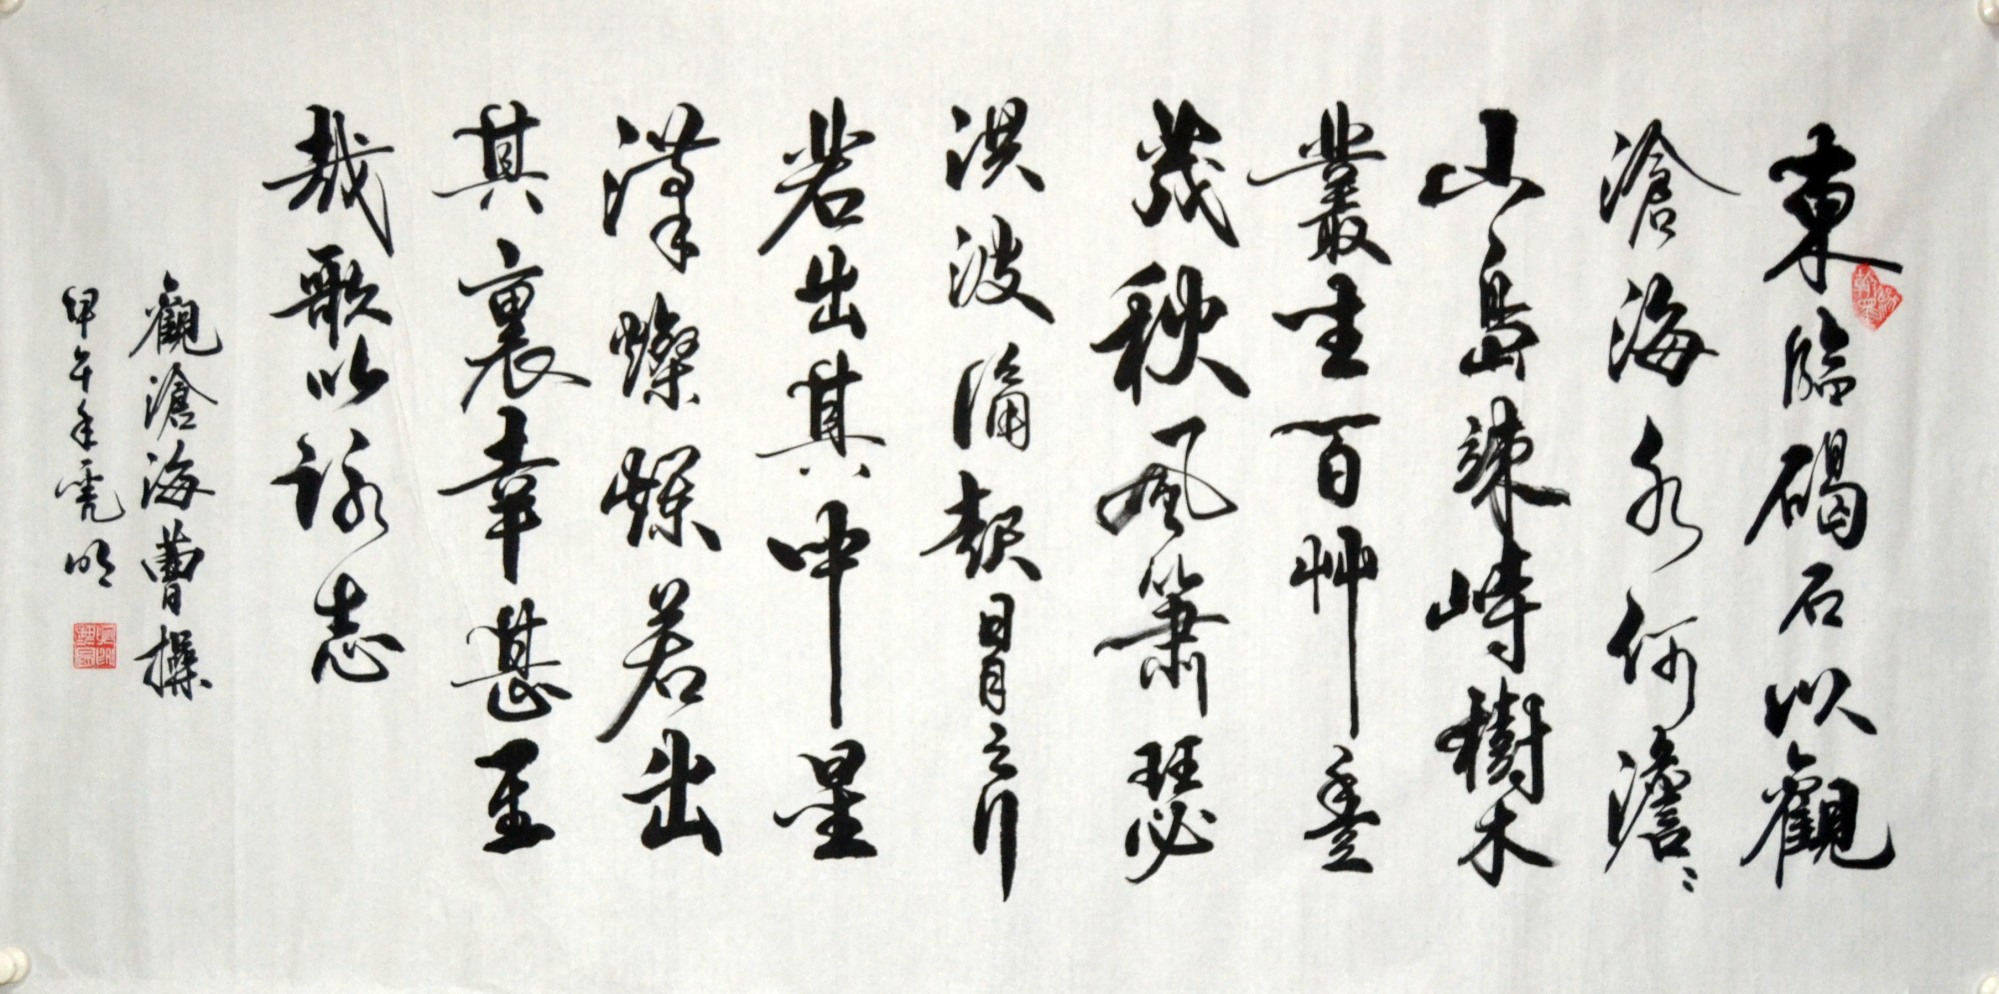 東臨碣石以觀
滄海水何澹〻
山島竦峙樹木
叢生百艸豐
茂秋風簫瑟
洪波涌起日月之行
若出其中星
漢燦爛若出
其裏幸甚至
哉歌以詠志
觀滄海曹操
甲午年明